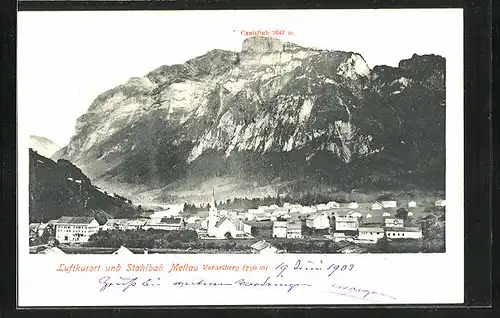 Canisfluh 2047 m
Luftkurort und Stahlbad Mellau Vorarlberg (750 m) 19 Juni 1903
Gruß bei